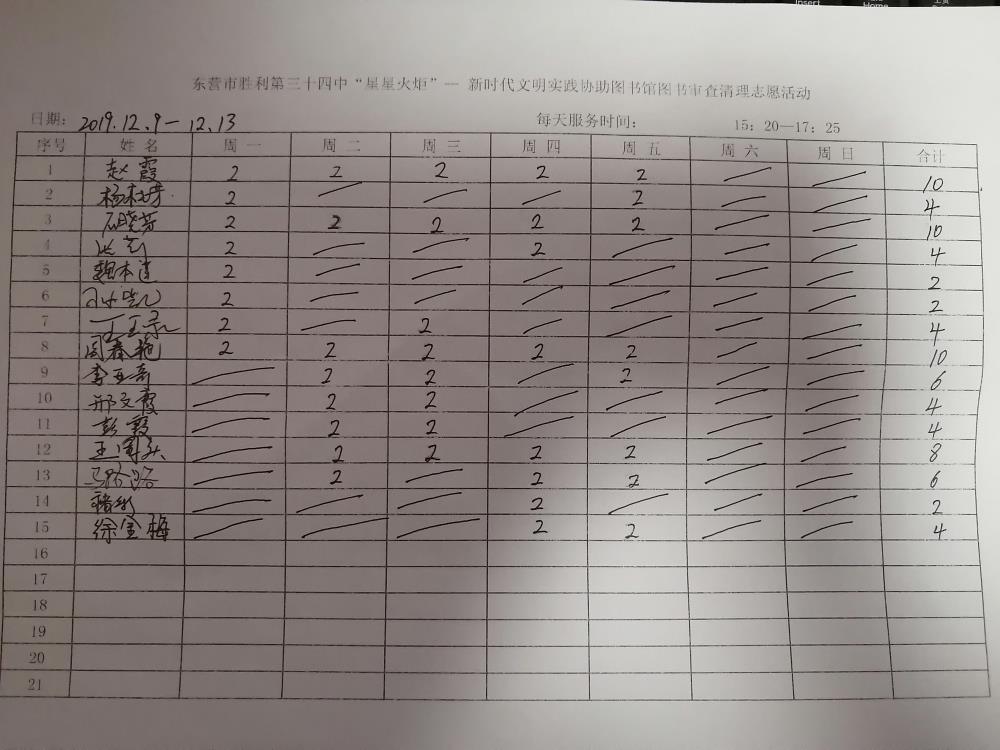 Insert
Home
东营市胜利第三十四中“星星火炬”— 新时代文明实践协助图书馆图书审查清理志愿活动
日期: 2019.12.9-12.13 每天服务时间: 15: 20—17: 25
序号 姓名 周一 周二 周三 周四 周五 周六 周日 合计
1 赵霞 2 2 2 2 2 — — 10
2 2 — — — 2 — — 4
3 石晓芳 2 2 2 2 2 — — 10
4 2 — — 2 — — — 4
5 魏本道 2 — — — — — — 2
6 孙凯 2 — — — — — — 2
7 2 — 2 — — — — 4
8 周春艳 2 2 2 2 2 — — 10
9 李亚奇 — 2 2 — 2 — — 6
10 邢文霞 — 2 2 — — — — 4
11 彭霞 — 2 2 — — — — 4
12 — 2 2 2 2 — — 8
13 — 2 — 2 2 — — 6
14 — — — 2 — — — 2
15 徐金梅 — — — 2 2 — — 4
16
17
18
19
20
21